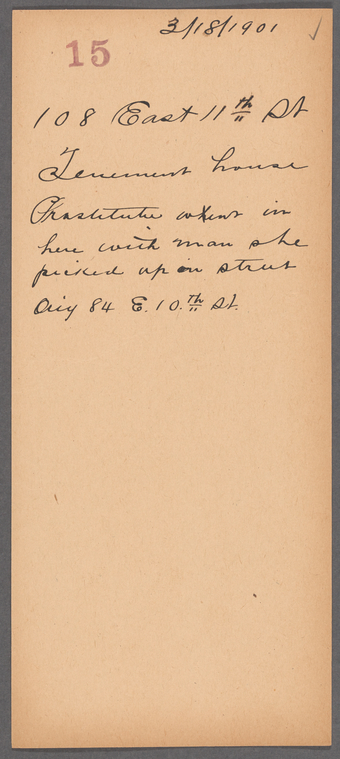 3/18/1901 ✓
15
108 East 11th St
Tenement house
Prostitute went in
here with man she
picked up on street
84 E. 10.th St.